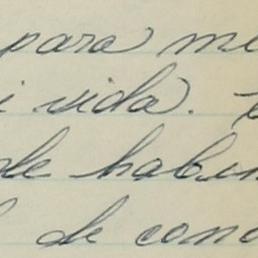 para me
i vida.
de habe
de cono